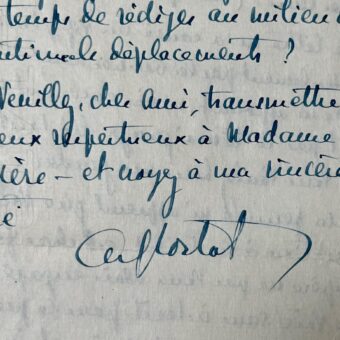 temps de rédiger au milieu
déplacements ?
Veuillez, cher ami, transmettre
respectueux à Madame
ière - et croyez à ma sincère